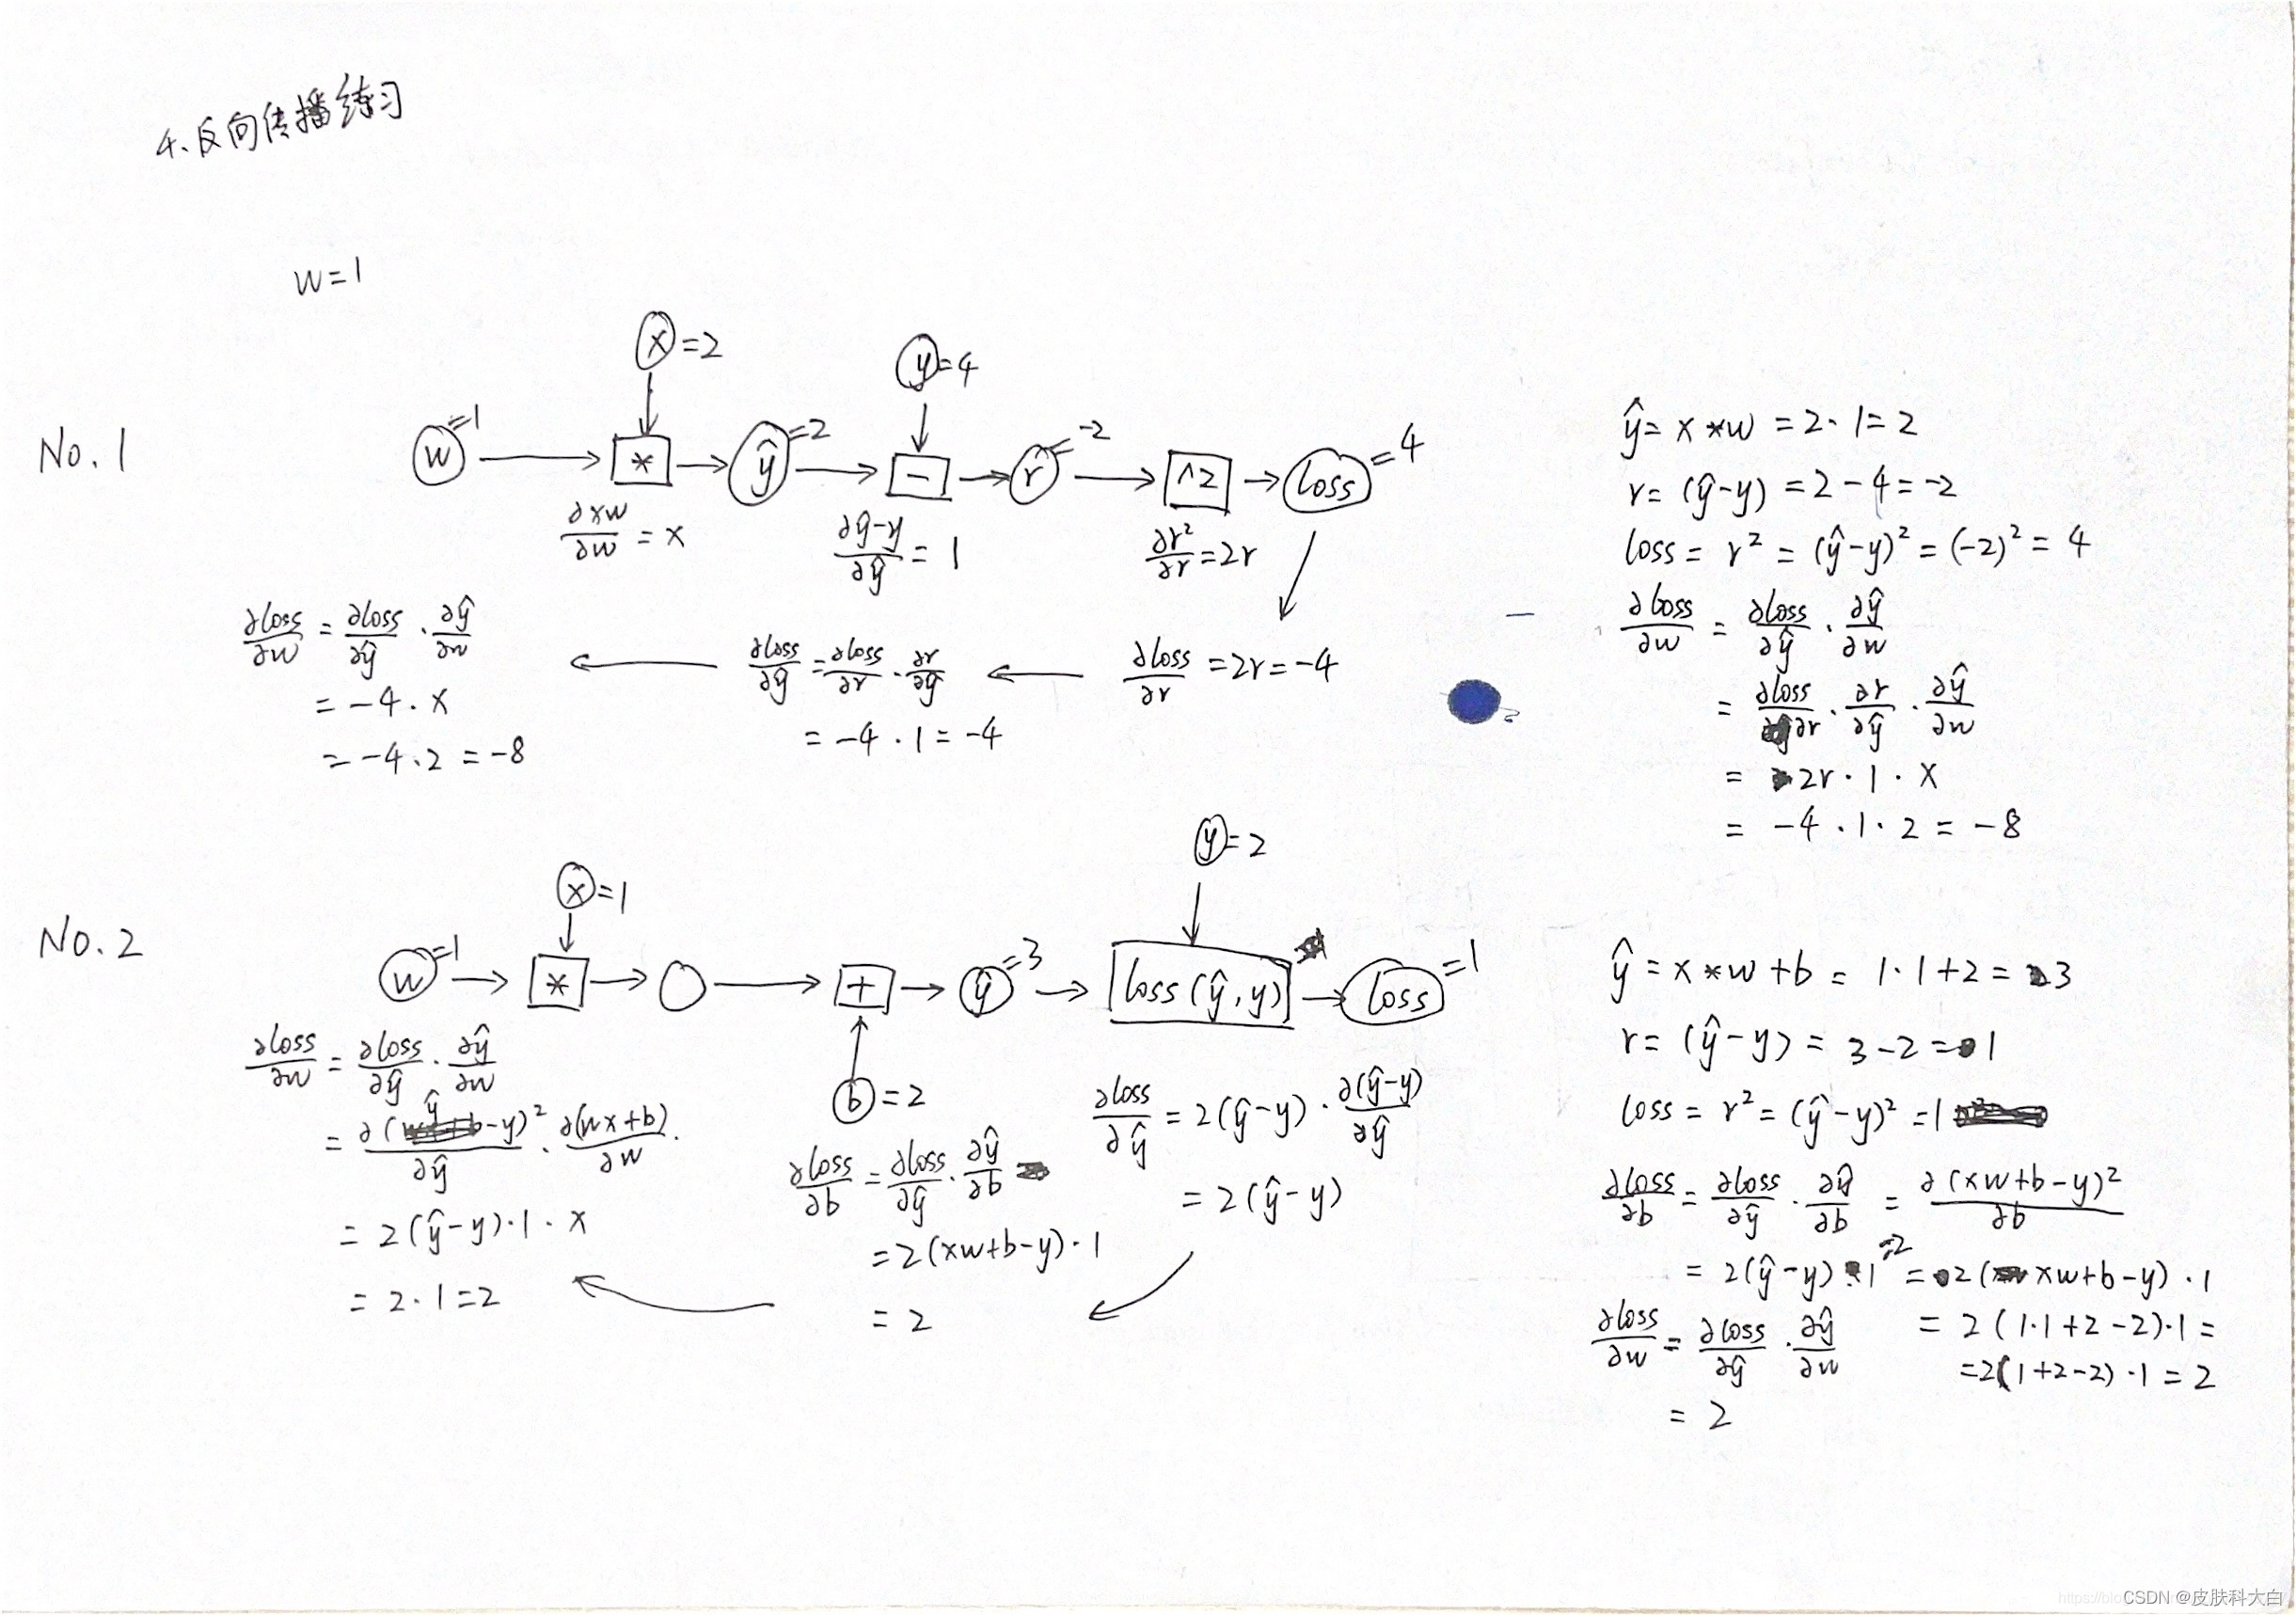 4. 反向传播练习
w=1
No.1
x =2
y =4
w =1
*
ŷ =2
-
r =-2
^2
loss =4
∂xw/∂w = x
∂ŷ-y/∂ŷ = 1
∂r²/∂r = 2r
∂loss/∂w = ∂loss/∂ŷ · ∂ŷ/∂w
= -4 · x
= -4 · 2 = -8
∂loss/∂ŷ = ∂loss/∂r · ∂r/∂ŷ
= -4 · 1 = -4
∂loss/∂r = 2r = -4
ŷ = x * w = 2 · 1 = 2
r = (ŷ-y) = 2 - 4 = -2
loss = r² = (ŷ-y)² = (-2)² = 4
∂loss/∂w = ∂loss/∂ŷ · ∂ŷ/∂w
= ∂loss/∂r · ∂r/∂ŷ · ∂ŷ/∂w
= 2r · 1 · x
= -4 · 1 · 2 = -8
No.2
x =1
y =2
w =1
*
+
ŷ =3
loss(ŷ, y)
loss =1
b =2
∂loss/∂w = ∂loss/∂ŷ · ∂ŷ/∂w
= ∂(ŷ-y)²/∂ŷ · ∂(wx+b)/∂w.
= 2(ŷ-y) · 1 · x
= 2 · 1 = 2
∂loss/∂b = ∂loss/∂ŷ · ∂ŷ/∂b
= 2(xw+b-y) · 1
= 2
∂loss/∂ŷ = 2(ŷ-y) · ∂(ŷ-y)/∂ŷ
= 2(ŷ-y)
ŷ = x * w + b = 1 · 1 + 2 = 3
r = (ŷ-y) = 3 - 2 = 1
loss = r² = (ŷ-y)² = 1
∂loss/∂b = ∂loss/∂ŷ · ∂ŷ/∂b = ∂(xw+b-y)²/∂b
= 2(ŷ-y) · 1 =2 = 2(xw+b-y) · 1
= 2(1·1+2-2)·1 =
=2(1+2-2)·1 = 2
∂loss/∂w = ∂loss/∂ŷ · ∂ŷ/∂w
= 2
CSDN @皮肤科大白